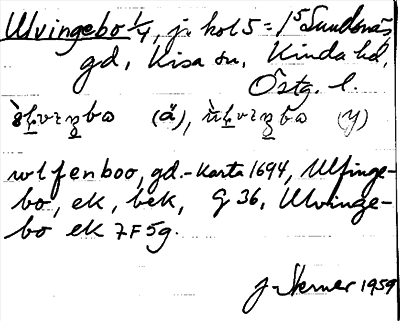 Ulvingebo 1/4, j. kol 5 = 1/5 Sundsnäs
gd, Kisa sn, Kinda hd,
Östg. l.
(ä), (y)
wlfenboo, gd. - Karta 1694, Ulfinge-
bo, ek, bek, G 36, Ulvinge-
bo ek 7F5g.
J. Sterner 1959